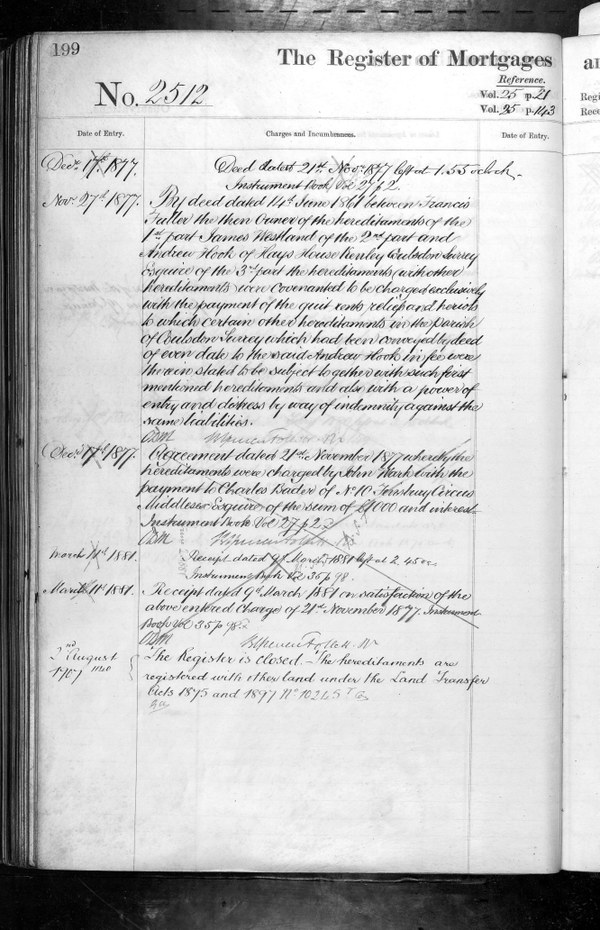 199
The Register of Mortgages
No. 2512
Reference.
Vol. 25 p. 21
Vol. 25 p. 143
Date of Entry.
Charges and Incumbrances.
Date of Entry.
Decr. 17th 1877.
Deed dated 21st Novr. 1877 left at 1.55 oclock.
Instrument Book Vol 27 p 2.
Novr. 27th 1877.
By deed dated 14th June 1861 between Francis
Fuller the then Owner of the hereditaments of the
1st part James Westland of the 2nd part and
Andrew Hook of Hays House Kenley Coulsdon Surrey
Esquire of the 3rd part the hereditaments (with other
hereditaments) were Covenanted to be charged exclusively
with the payment of the quit rents reliefs and heriots
to which certain other hereditaments in the parish
of Coulsdon Surrey which had been conveyed by deed
of even date to the said Andrew Hook in fee were
therein stated to be subject together with such first
mentioned hereditaments and also with a power of
entry and distress by way of indemnity against the
same liabilities.
Decr. 17th 1877.
Agreement dated 21st November 1877 whereby the
hereditaments were charged by John Wark with the
payment to Charles Bader of No 10 Finsbury Circus
Middlesex Esquire of the sum of £1000 and interest
Instrument Book Vol 27 p 2
March 11th 1881.
Receipt dated 9th March 1881 left at 2.45 oc
Instrument Book Vol 35 p 98.
March 11th 1881.
Receipt dated 9th March 1881 on satisfaction of the
above entered Charge of 21st November 1877 Instrument
Book Vol 35 p 98
2nd August
1907
The Register is closed. The hereditaments are
registered with other land under the Land Transfer
Acts 1875 and 1897 No